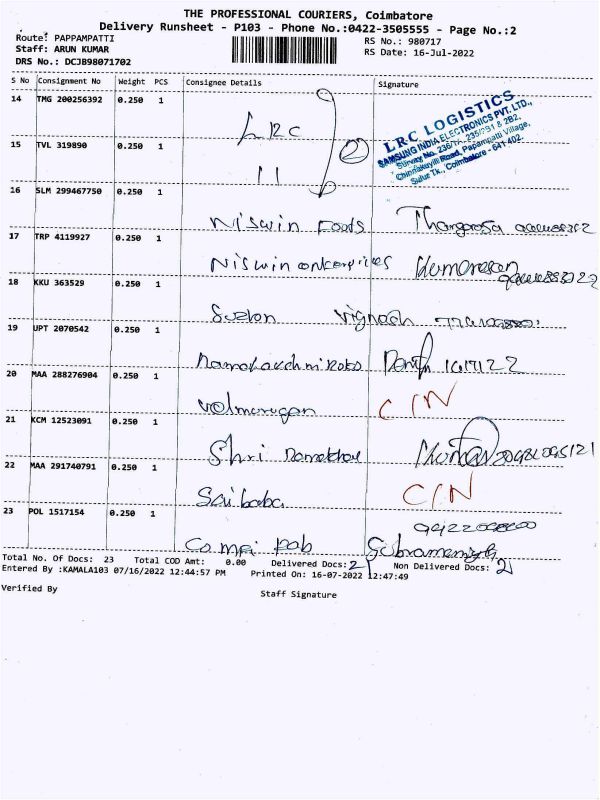 THE PROFESSIONAL COURIERS, Coimbatore
Delivery Runsheet - P103 - Phone No.:0422-3505555 - Page No.:2
Route: PAPPAMPATTI
RS No.: 980717
Staff: ARUN KUMAR
RS Date: 16-Jul-2022
DRS No.: DCJ898071702
S No Consignment No Weight PCS Consignee Details Signature
14 TMG 200256392 0.250 1
LRC
2
LRC LOGISTICS
SAMSUNG INDIA ELECTRONICS PVT. LTD.,
Chinnakuyili Road, Papampatti Village,
Sulur Tk., Coimbatore - 641 402.
15 TVL 319890 0.250 1
11
16 SLM 299467750 0.250 1
Niswin Foods
17 TRP 4119927 0.250 1
Niswin enterprises Kumaresan
18 KKU 363529 0.250 1
Suzlon Vignesh
19 UPT 2070542 0.250 1
20 MAA 288276904 0.250 1
Velmurugan C/N
21 KCM 12523091 0.250 1
Shri
22 MAA 291740791 0.250 1
Saibaba C/N
23 POL 1517154 0.250 1
Total No. Of Docs: 23 Total COD Amt: 0.00 Delivered Docs: 21 Non Delivered Docs: 2
Entered By :KAMALA103 07/16/2022 12:44:57 PM Printed On: 16-07-2022 12:47:49
Verified By
Staff Signature